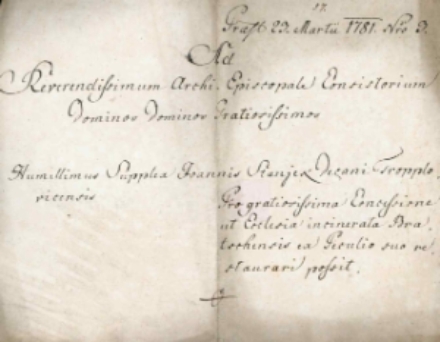 17.
Præst 23. Martii 1781. Nro 3.
Ad
Reverendissimum Archi-Episcopale Consistorium
Dominos Dominos Gratiosissimos
Humillimus Supplex Joannis Stanjek Decani Tropplo,
vicensis
Pro gratiosissima Concessione
ut Ecclesia incinerata Bra,
tschensis ea Peculio suo re,
staurari possit.